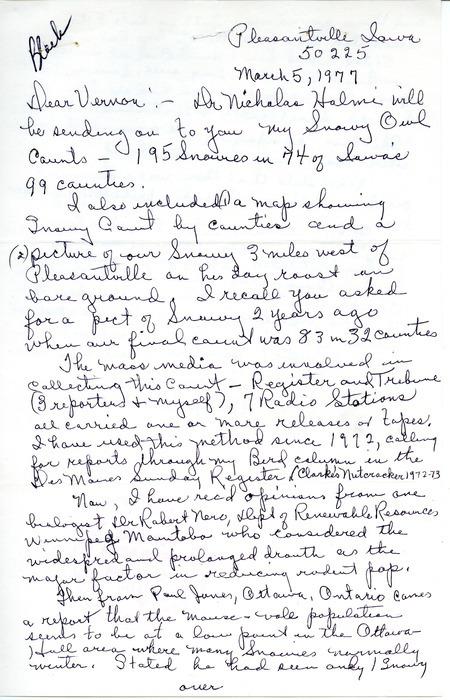 Black
Pleasantville Iowa
50225
March 5, 1977
Dear Vernon:- Dr Nicholas Halmi will
be sending on to you my Snowy Owl
Counts - 195 Snowies in 74 of Iowa's
99 counties.
I also included a map showing
Snowy Count by counties and a
(2) picture of our Snowy 3 miles west of
Pleasantville on his day roost on
bare ground. I recall you asked
for a pict of Snowy 2 years ago
when our final count was 83 in 32 counties
The mass media was involved in
collecting this Count - Register and Tribune
(3 reporters + myself), 7 Radio Stations
all carried one or more releases or tapes.
I have used this method since 1972, calling
for reports through my Bird column in the
Des Moines Sunday Register (Clark's Nutcracker 1972-73
Now, I have read opinions from one
biologist Dr Robert Nero, Dept of Renewable Resources
Winnipeg Manitoba who considered the
widespread and prolonged drouth as the
major factor in reducing rodent pop.
Then from Paul Jones, Ottawa, Ontario comes
a report that the mouse-vole population
seems to be at a low point in the Ottawa-
Hull area where many Snowies normally
winter. Stated he had seen only 1 Snowy
over